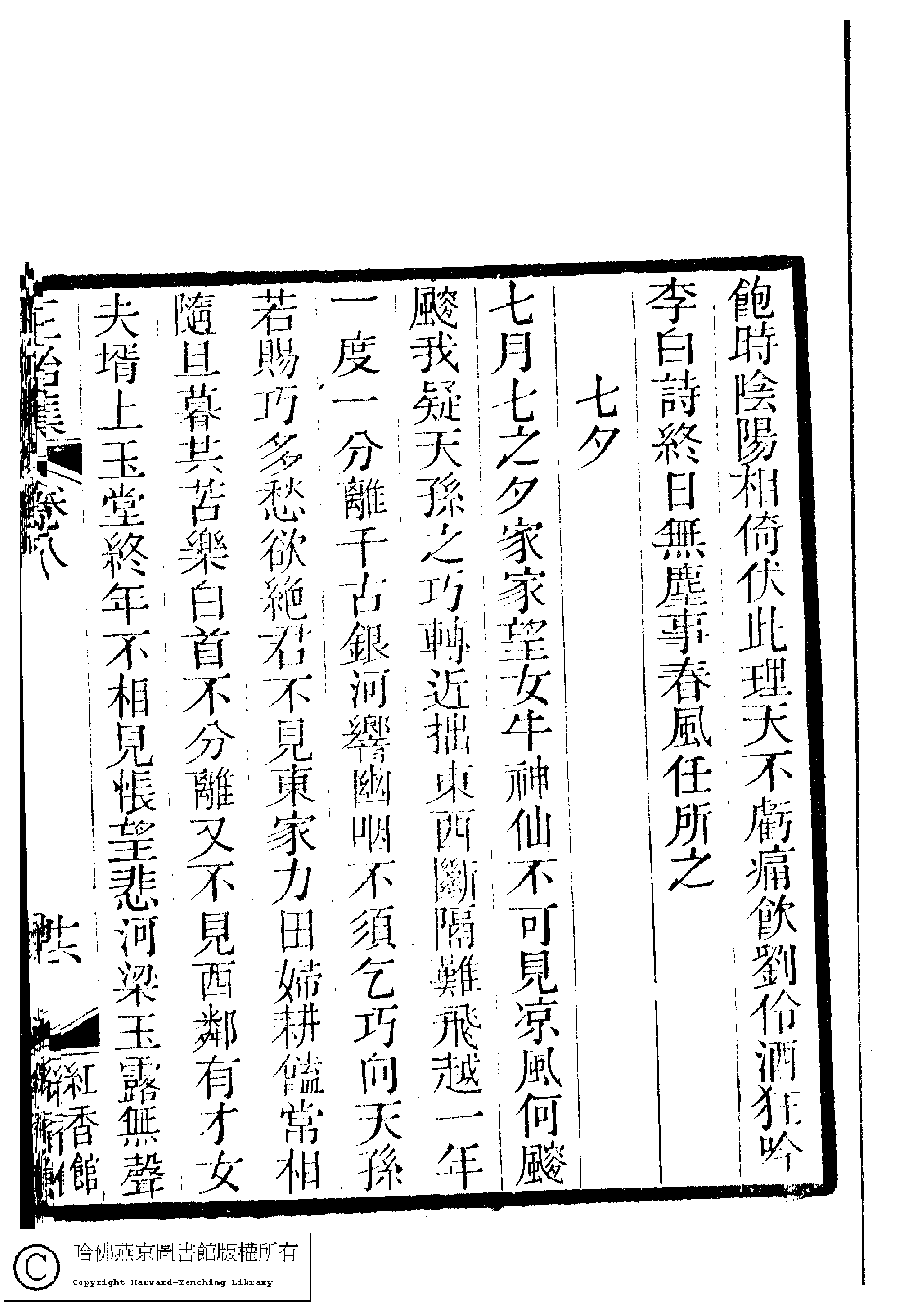 飽時陰陽相倚伏此理天不虧痛飲劉伶酒狂吟
李白詩終日無塵事春風任所之
七夕
七月七之夕家家望女牛神仙不可見凉風何颼
颼我疑天孫之巧轉近拙東西斷隔難飛越一年
一度一分離千古銀河響幽咽不須乞巧向天孫
若賜巧多愁欲絶君不見東家力田婦耕饁常相
隨旦暮共苦樂白首不分離又不見西鄰有才女
夫壻上玉堂終年不相見悵望悲河梁玉露無聲
正始集
卷八
共
紅香館
哈佛燕京圖書館版權所有
Copyright Harvard-Yenching Library